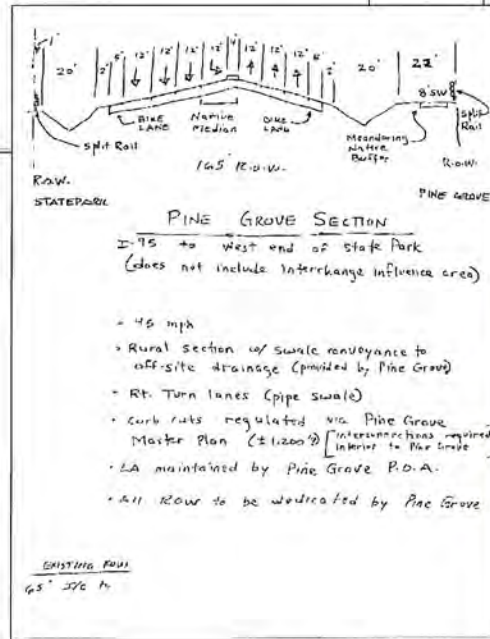 1'
20' 2' 5' 12' 12' 12' 12' 4' 12' 12' 12' 5' 2' 20' 22'
8' SW
BIKE LANE
Native Median
BIKE LANE
Meandering Native Buffer
Split Rail
Split Rail
165' R.O.W.
R.O.W.
R.O.W.
STATEPARK
PINE GROVE
PINE GROVE SECTION
I-95 to West end of State Park
(does not include interchange influence area)
- 45 mph
• Rural section w/ swale conveyance to
off-site drainage (provided by Pine Grove)
• Rt. Turn lanes (pipe swale)
• Curb cuts regulated via Pine Grove
Master Plan (±1,200') [interconnections required
interior to Pine Grove
• LA maintained by Pine Grove P.O.A.
• All ROW to be dedicated by Pine Grove
EXISTING ROW
65'